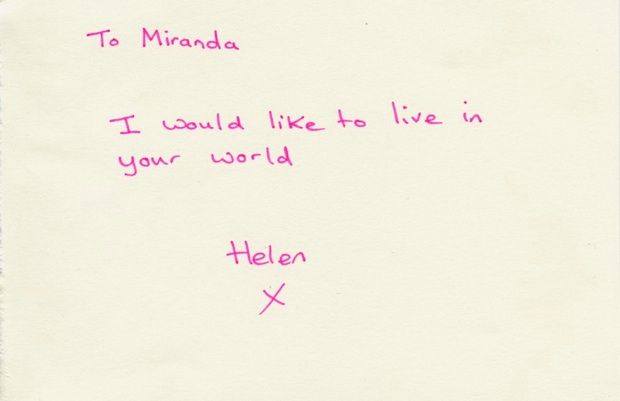 To Miranda
I would like to live in
your world
Helen
X